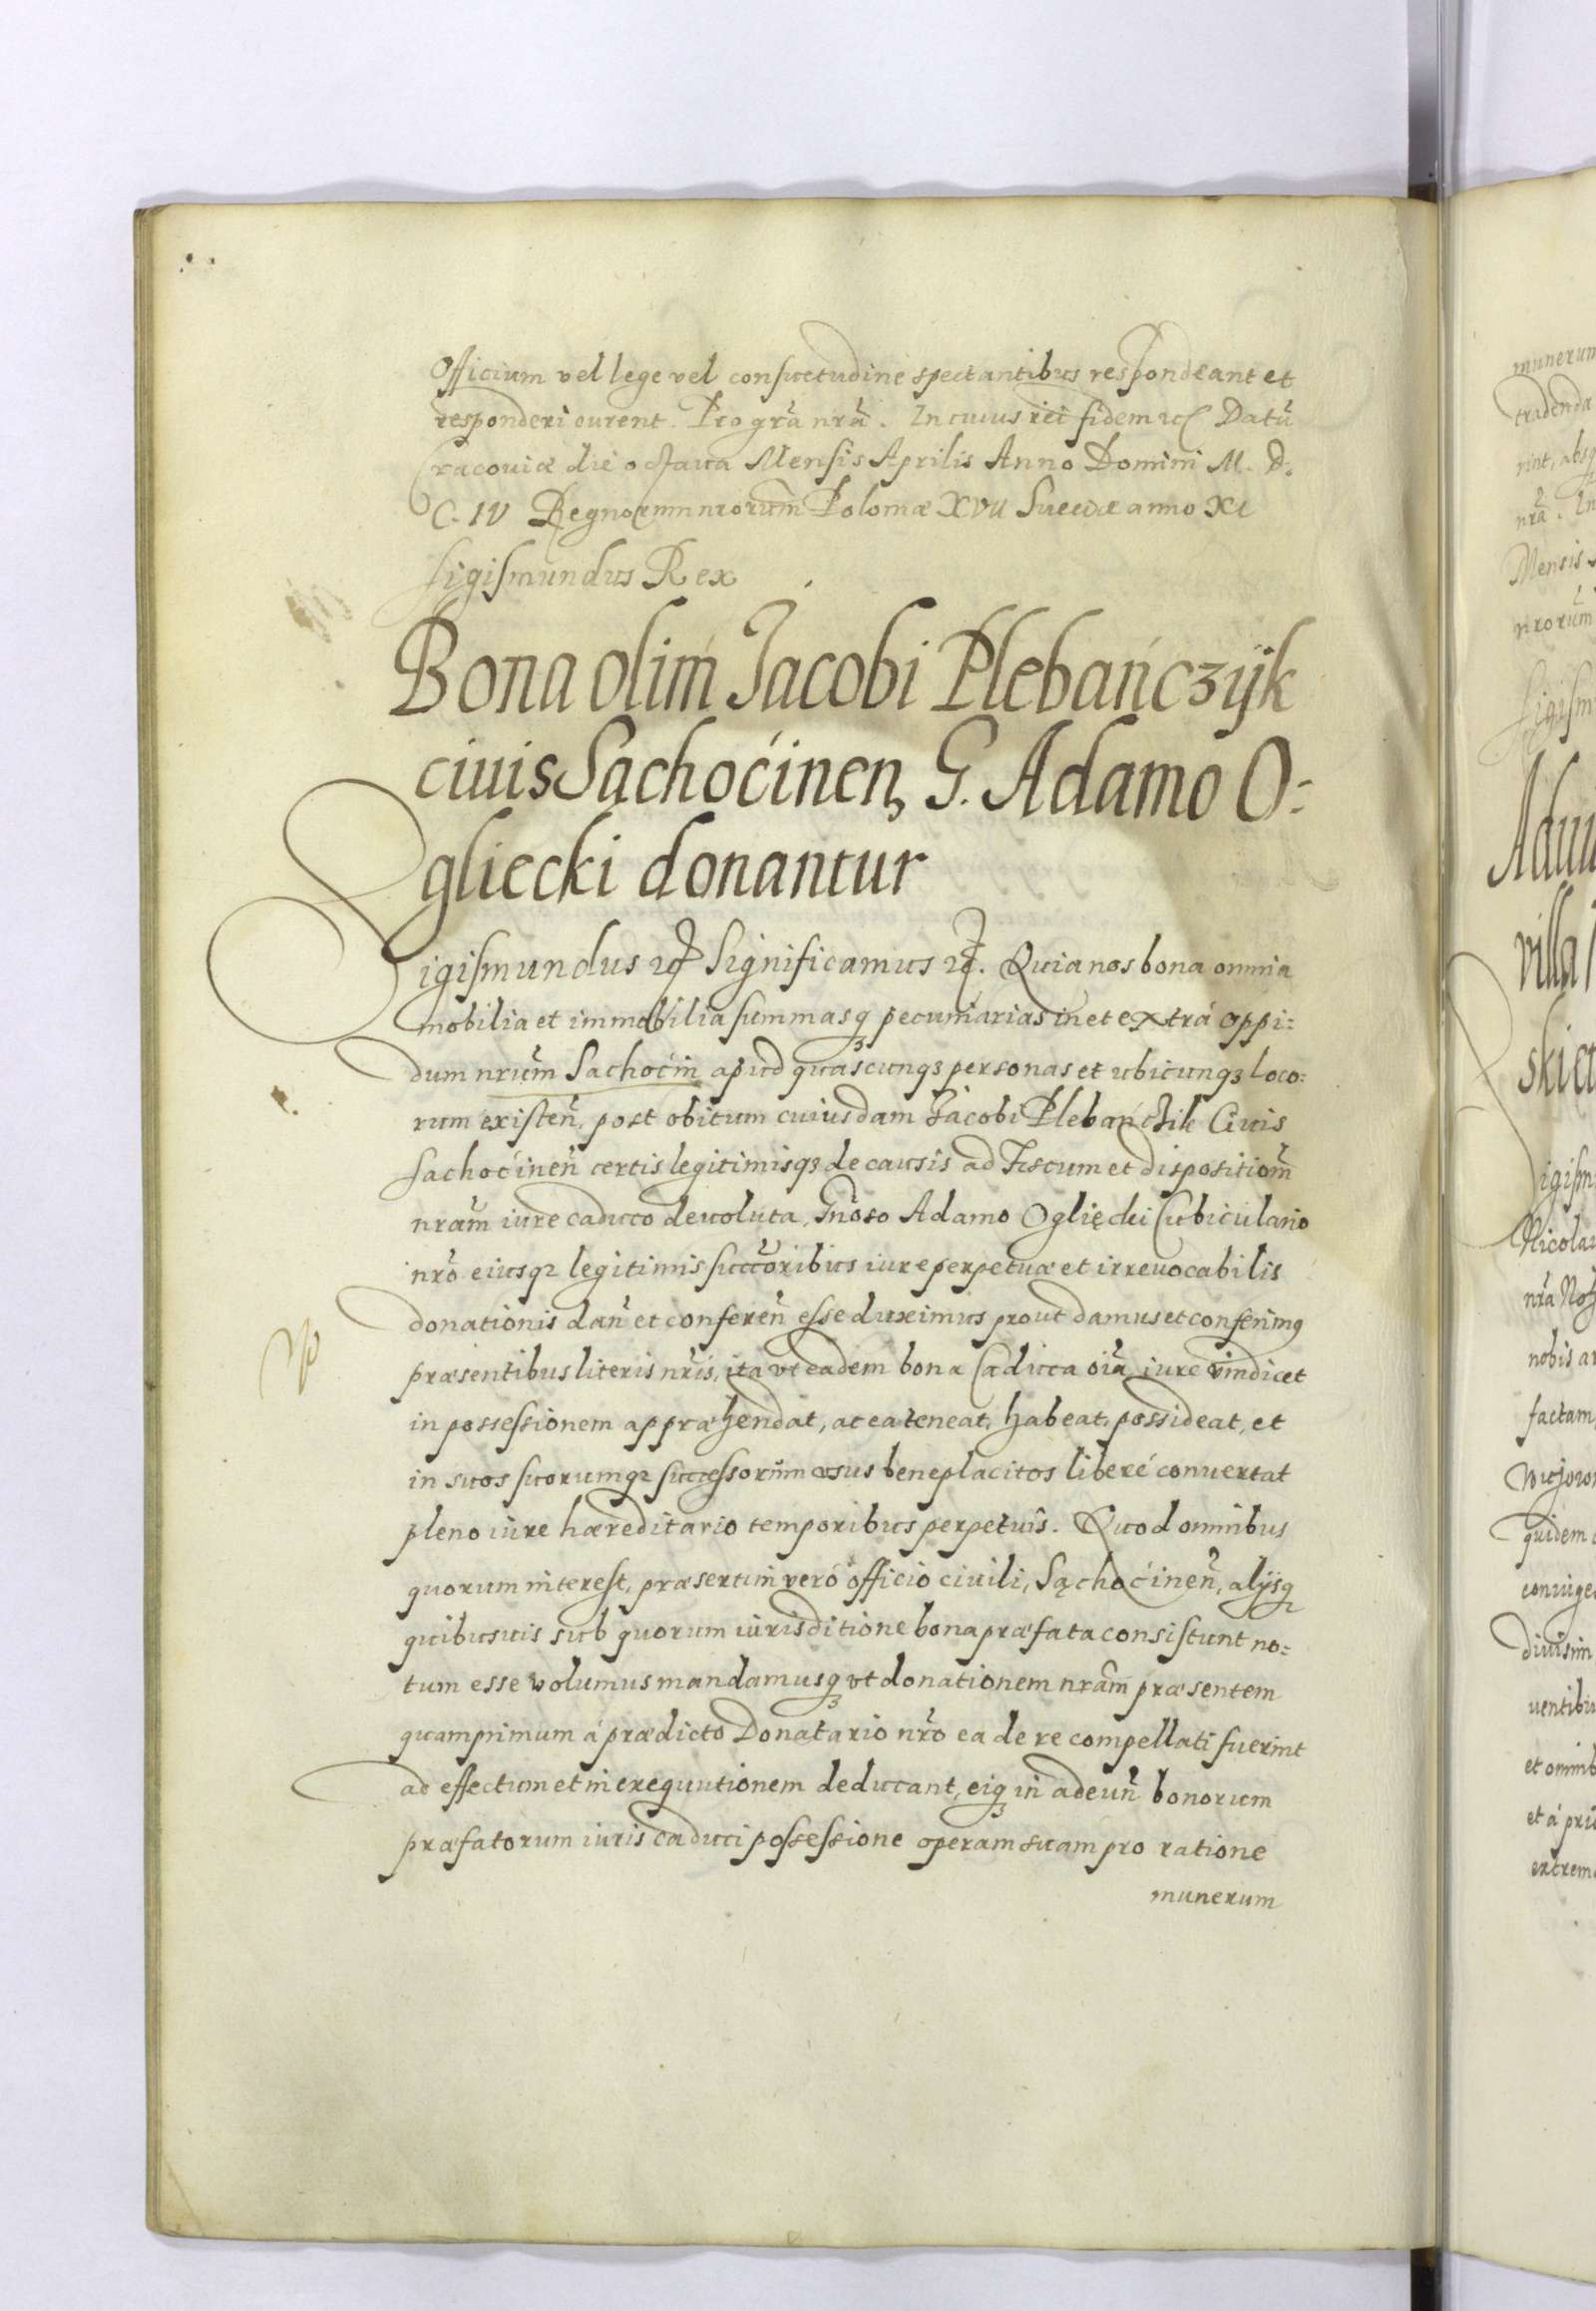 Officium vel lege vel consuetudine spectantibus respondeant et
responderi curent. Pro gr̃a nr̃a. In cuius rei fidem etc Datũ
Cracouiæ die octaua Mensis Aprilis Anno Domini M. D.
C. IV Regnorum nrorum̃ Poloniæ XVII Sueciæ anno XI
Sigismundus Rex
Bona olim Jacobi Plebańczÿk
ciuis Sąchoćinen, G. Adamo O=
gliecki donantur
Sigismundus etc Significamus etc. Quia nos bona omnia
mobilia et immobilia summasq3 pecuniarias in et extrá oppi=
dum nrũm Sachoćin apud quascunq3 personas et ubicunq3 loco=
rum existen̄, post obitum cuiusdam Jacobi Plebańchik Ciuis
Sachoćinen̄ certis legitimisq3 de causis ad Fiscum et dispositiom̃
nram̃ iure caduco deuoluta, Gnõso Adamo Oglięcki Cubiculario
nrõ eiusq3 legitimis succõribus iure perpetuæ et irreuocabilis
donationis dan̄ et conferen̄ esse duximus prout damus et conferimq
præsentibus literis nrĩs, ita vt eadem bona Caduca oĩa iure vindicet
in possessionem appræhendat, ac ea teneat, habeat, possideat, et
in suos suorumq3 successorũm usus beneplacitos liberé conuertat
pleno iure hæreditario temporibus perpetuis. Quod omnibus
quorum interest, præsertim veró officio ciuili, Sąchoćinen̄, alijsq3
quibusuis sub quorum iurisditione bona præfata consistunt no=
tum esse volumus mandamusq3 vt donationem nram̃ præsentem
quamprimum á prædicto Donatario nrõ ea de re compellati fuerint
ad effectum et in exequutionem deducant, eiq3 in adeun̄ bonorum
præfatorum iuris caduci possessione operam suam pro ratione
munerum
munerum
tradenda
rint, absq
nrã. In
Mensis
nrorũm
Sigism
Aduu
villa
ski et
igism
Nicolai
nrã
nobis
factam
quidem
coniuge
diuisim
uentibu
et omnib
et á pri
extrem